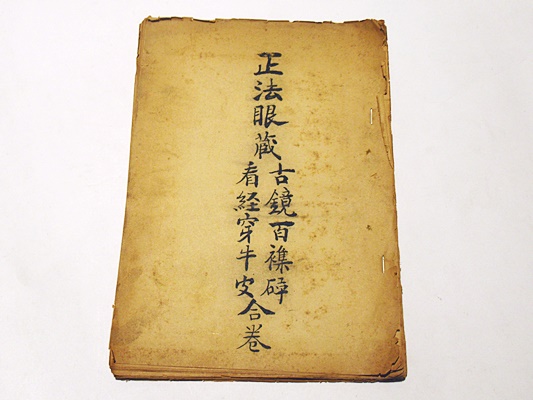 正法眼蔵
古鏡百襍碎
看経穿牛皮
合巻